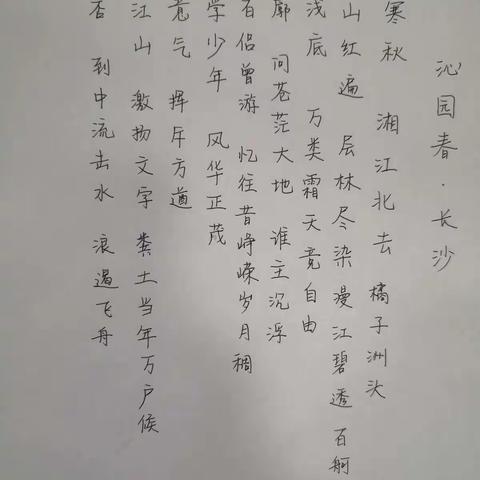 沁园春·长沙
寒秋 湘江北去 橘子洲头
山红遍 层林尽染 漫江碧透 百舸
浅底 万类霜天竞自由
廓 问苍茫大地 谁主沉浮
百侣曾游 忆往昔峥嵘岁月稠
学少年 风华正茂
意气 挥斥方遒
江山 激扬文字 粪土当年万户候
否 到中流击水 浪遏飞舟